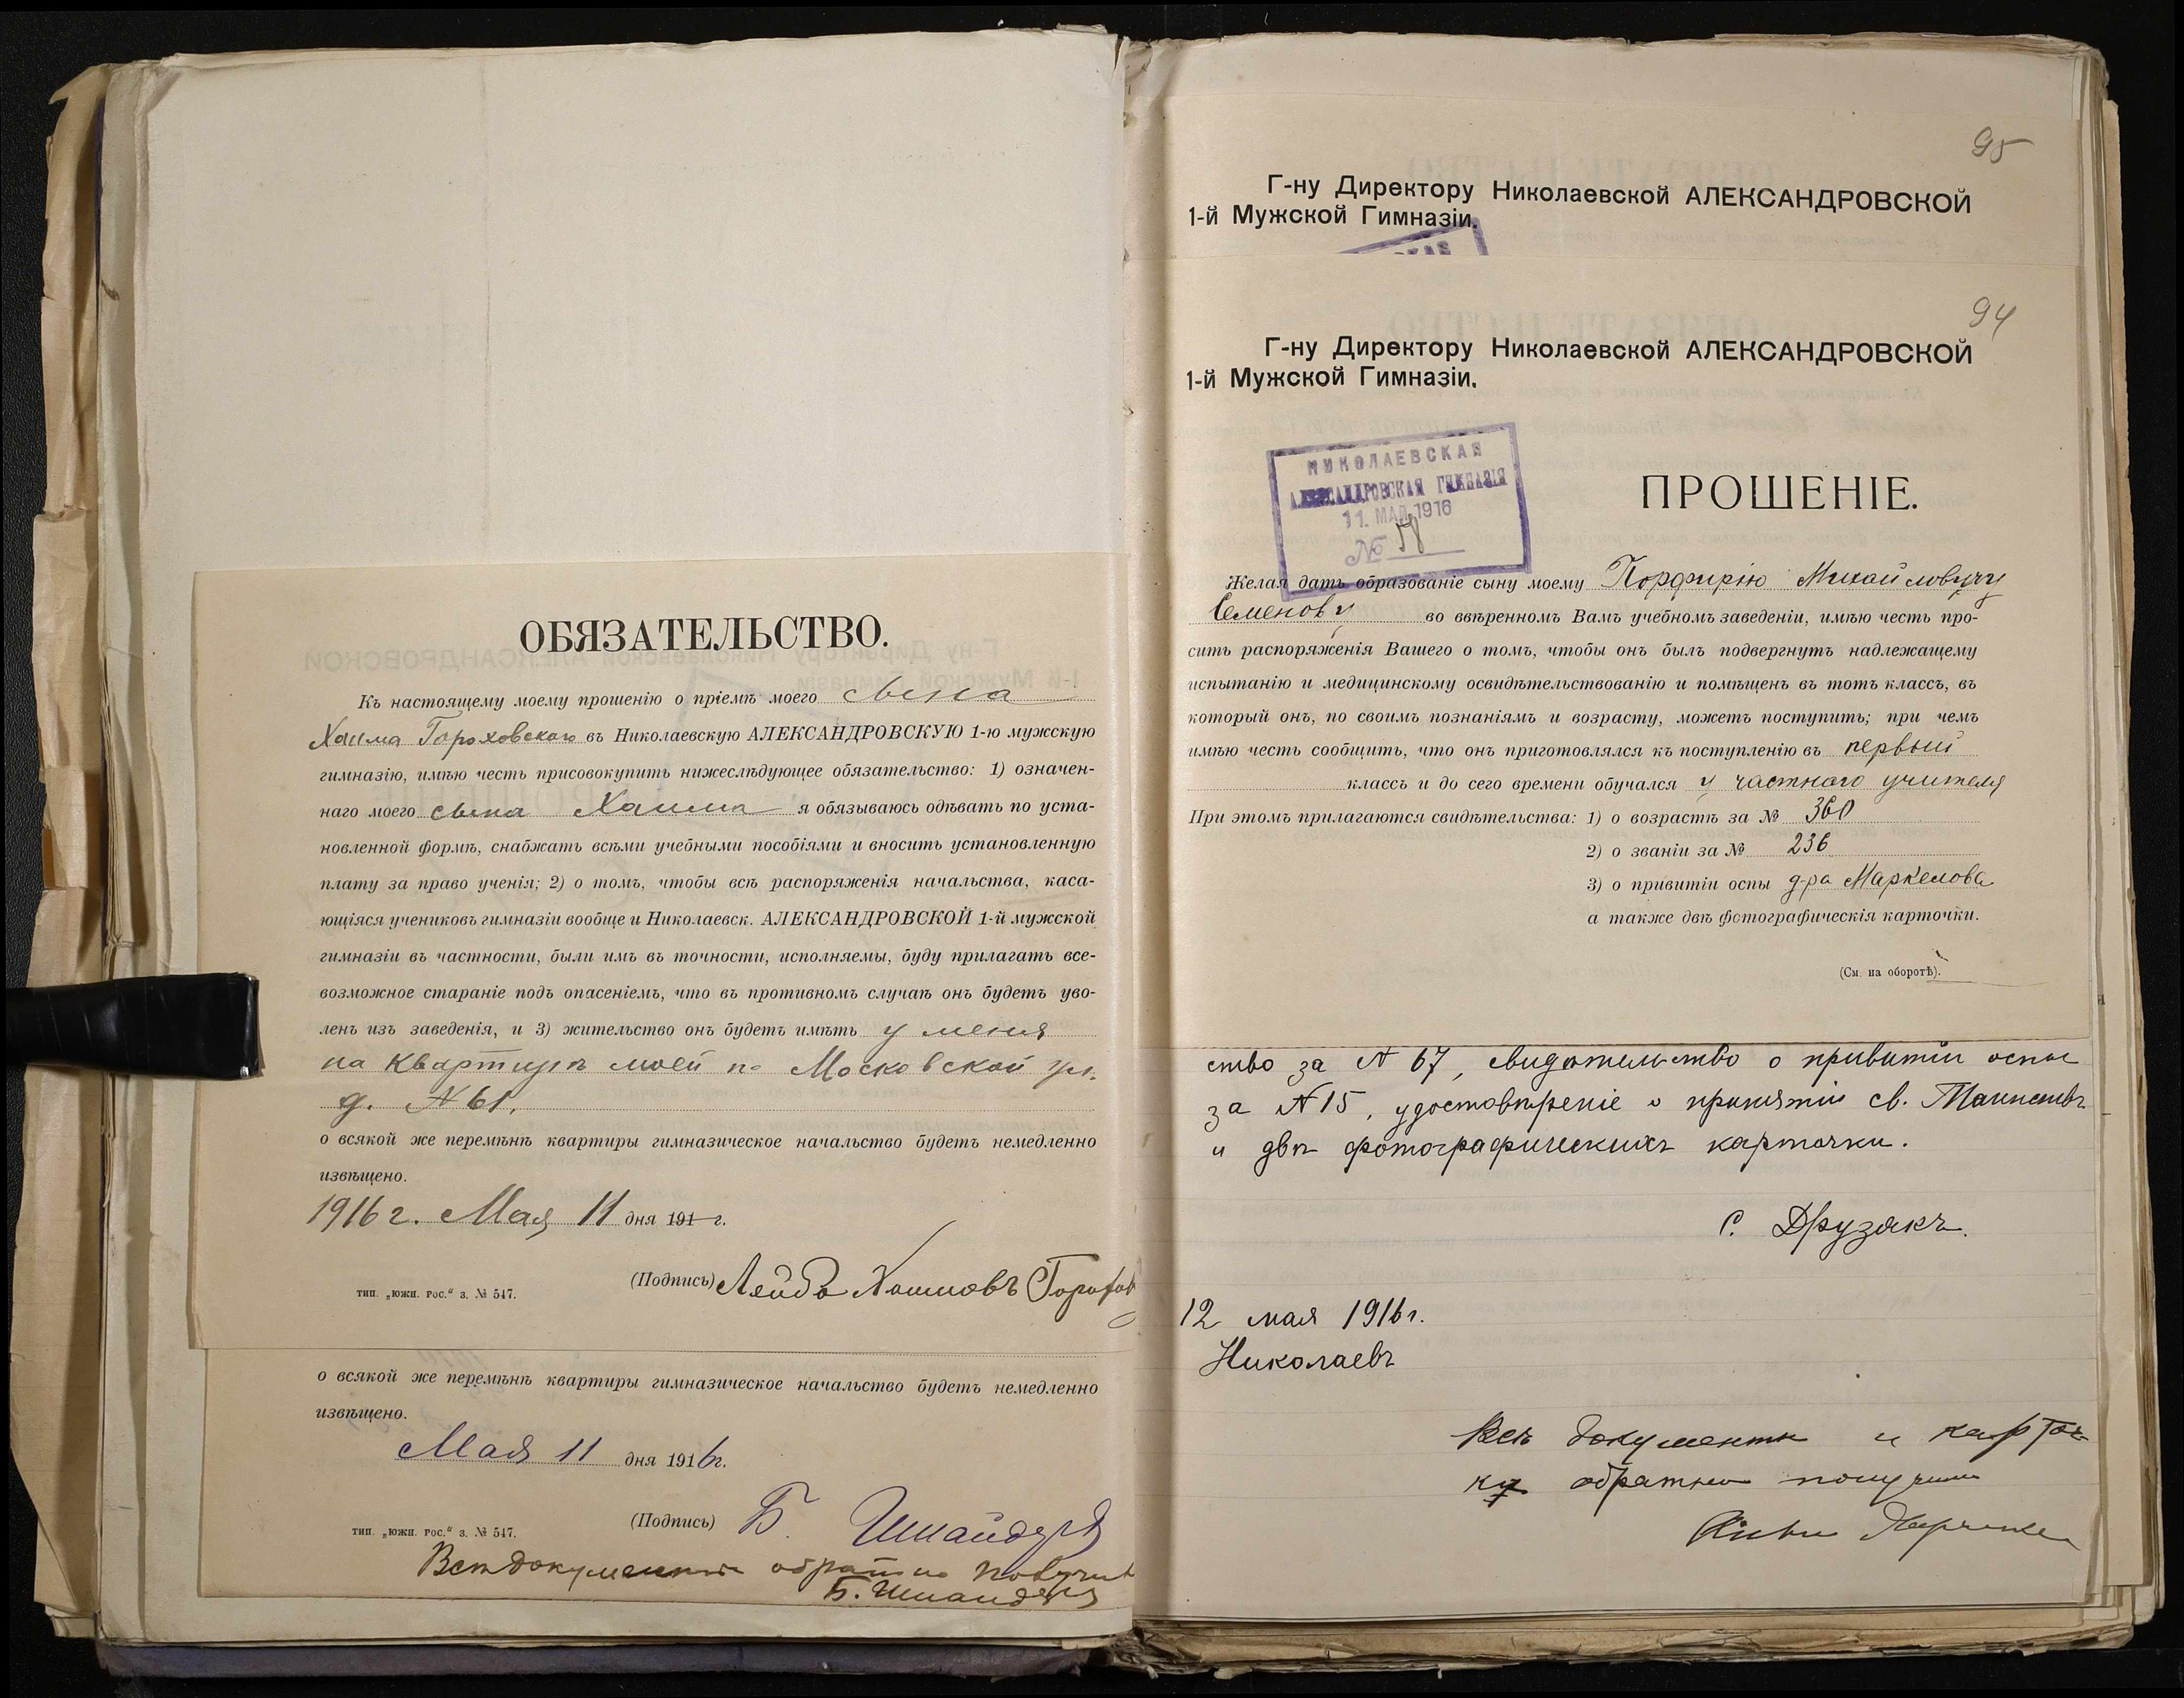 ОБЯЗАТЕЛЬСТВО.
Къ настоящему моему прошенію о пріемѣ моего сына
Хаима Гороховскаго въ Николаевскую АЛЕКСАНДРОВСКУЮ 1-ю мужскую
гимназію, имѣю честь присовокупить нижеслѣдующее обязательство: 1) означен-
наго моего сына Хаима я обязываюсь одѣвать по уста-
новленной формѣ, снабжать всѣми учебными пособіями и вносить установленную
плату за право ученія; 2) о томъ, чтобы всѣ распоряженія начальства, каса-
ющіяся учениковъ гимназіи вообще и Николаевск. АЛЕКСАНДРОВСКОЙ 1-й мужской
гимназіи въ частности, были имъ въ точности, исполняемы, буду прилагать все-
возможное стараніе подъ опасеніемъ, что въ противномъ случаѣ онъ будетъ уво-
ленъ изъ заведенія, и 3) жительство онъ будетъ имѣть у меня
на квартирѣ моей по Московской ул.
д. № 61.
о всякой же перемѣнѣ квартиры гимназическое начальство будетъ немедленно
извѣщено.
1916 г. Мая 11 дня 191 г.
(Подпись) Лейба Хаимовъ Горохов
тип. „южн. рос.“ з. № 547.
о всякой же перемѣнѣ квартиры гимназическое начальство будетъ немедленно
извѣщено.
Мая 11 дня 1916 г.
(Подпись) Б. Шнайдеръ
тип. „южн. рос.“ з. № 547.
Всѣ документы обратно получил
Б. Шнайдеръ
95
Г-ну Директору Николаевской АЛЕКСАНДРОВСКОЙ
1-й Мужской Гимназіи.
94
Г-ну Директору Николаевской АЛЕКСАНДРОВСКОЙ
1-й Мужской Гимназіи.
НИКОЛАЕВСКАЯ
АЛЕКСАНДРОВСКАЯ ГИМНАЗІЯ
11. МАЙ 1916
№ 58
ПРОШЕНІЕ.
Желая дать образованіе сыну моему Порфирію Михайловичу
Семенову во ввѣренномъ Вамъ учебномъ заведеніи, имѣю честь про-
сить распоряженія Вашего о томъ, чтобы онъ былъ подвергнутъ надлежащему
испытанію и медицинскому освидѣтельствованію и помѣщенъ въ тотъ классъ, въ
который онъ, по своимъ познаніямъ и возрасту, можетъ поступить; при чемъ
имѣю честь сообщить, что онъ приготовлялся къ поступленію въ первый
классъ и до сего времени обучался у частнаго учителя
При этомъ прилагаются свидѣтельства: 1) о возрастѣ за № 360
2) о званіи за № 236
3) о привитіи оспы д-ра Маркелова
а также двѣ фотографическія карточки.
(См. на оборотѣ).
ство за № 67, свидѣтельство о привитіи оспы
за № 15, удостовѣреніе о принятіи св. Таинствъ
и двѣ фотографическихъ карточки.
С. Друзякъ.
12 мая 1916 г.
Николаевъ
Всѣ документы и карточ-
ку обратно получил